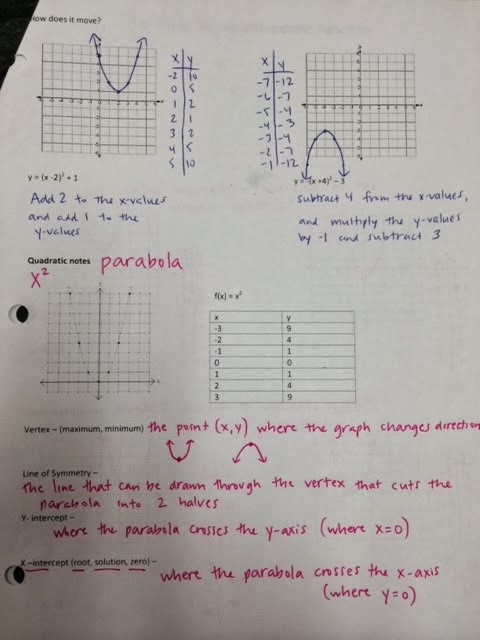 How does it move?
x y
-2 10
0 5
1 2
2 1
3 2
4 5
5 10
x y
-7 -12
-6 -7
-5 -4
-4 -3
-3 -4
-2 -7
-1 -12
y = (x -2)² + 1
y = -(x +4)² – 3
Add 2 to the x-values
and add 1 to the
y-values
subtract 4 from the x-values,
and multiply the y-values
by -1 and subtract 3
Quadratic notes parabola
x²
f(x) = x²
x y
-3 9
-2 4
-1 1
0 0
1 1
2 4
3 9
Vertex – (maximum, minimum) the point (x,y) where the graph changes direction
Line of Symmetry –
the line that can be drawn through the vertex that cuts the
parabola into 2 halves
Y- intercept –
where the parabola crosses the y-axis (where x=0)
X –intercept (root, solution, zero) –
where the parabola crosses the x-axis
(where y=0)